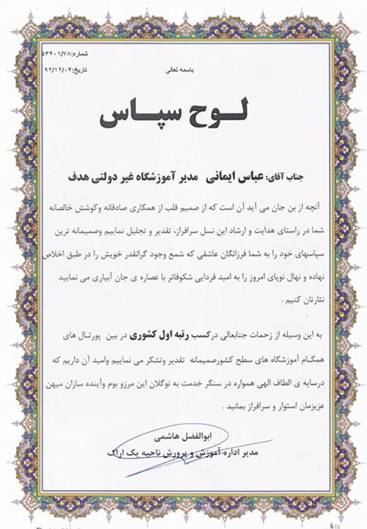 شماره:۵۳۴۰۱/۷۸
باسمه تعالی
تاریخ:۹۲/۱۲/۰۴
لوح سپاس
جناب آقای: عباس ایمانی مدیر آموزشگاه غیر دولتی هدف
آنچه از بن جان می آید آن است که از صمیم قلب از همکاری صادقانه وکوشش خالصانه
شما در راستای هدایت و ارشاد این نسل سرافراز، تقدیر و تجلیل نماییم وصمیمانه ترین
سپاسهای خود را به شما فرزانگان عاشقی که شمع وجود گرانقدر خویش را در طبق اخلاص
نهاده و نهال نوپای امروز را به امید فردایی شکوفاتر با عصاره ی جان آبیاری می نمایید
نثارتان کنیم .
به این وسیله از زحمات جنابعالی درکسب رتبه اول کشوری در بین پورتـال های
همگـام آموزشگاه های سطح کشورصمیمانه تقدیر وتشکر می نماییم وامید آن داریم که
درسایه ی الطاف الهی همواره در سنگر خدمت به نوگلان این مرزو بوم وآینده سازان میهن
عزیزمان استوار و سرافراز بمانید .
ابوالفضل هاشمی
مدیر اداره آموزش و پرورش ناحیه یک اراک